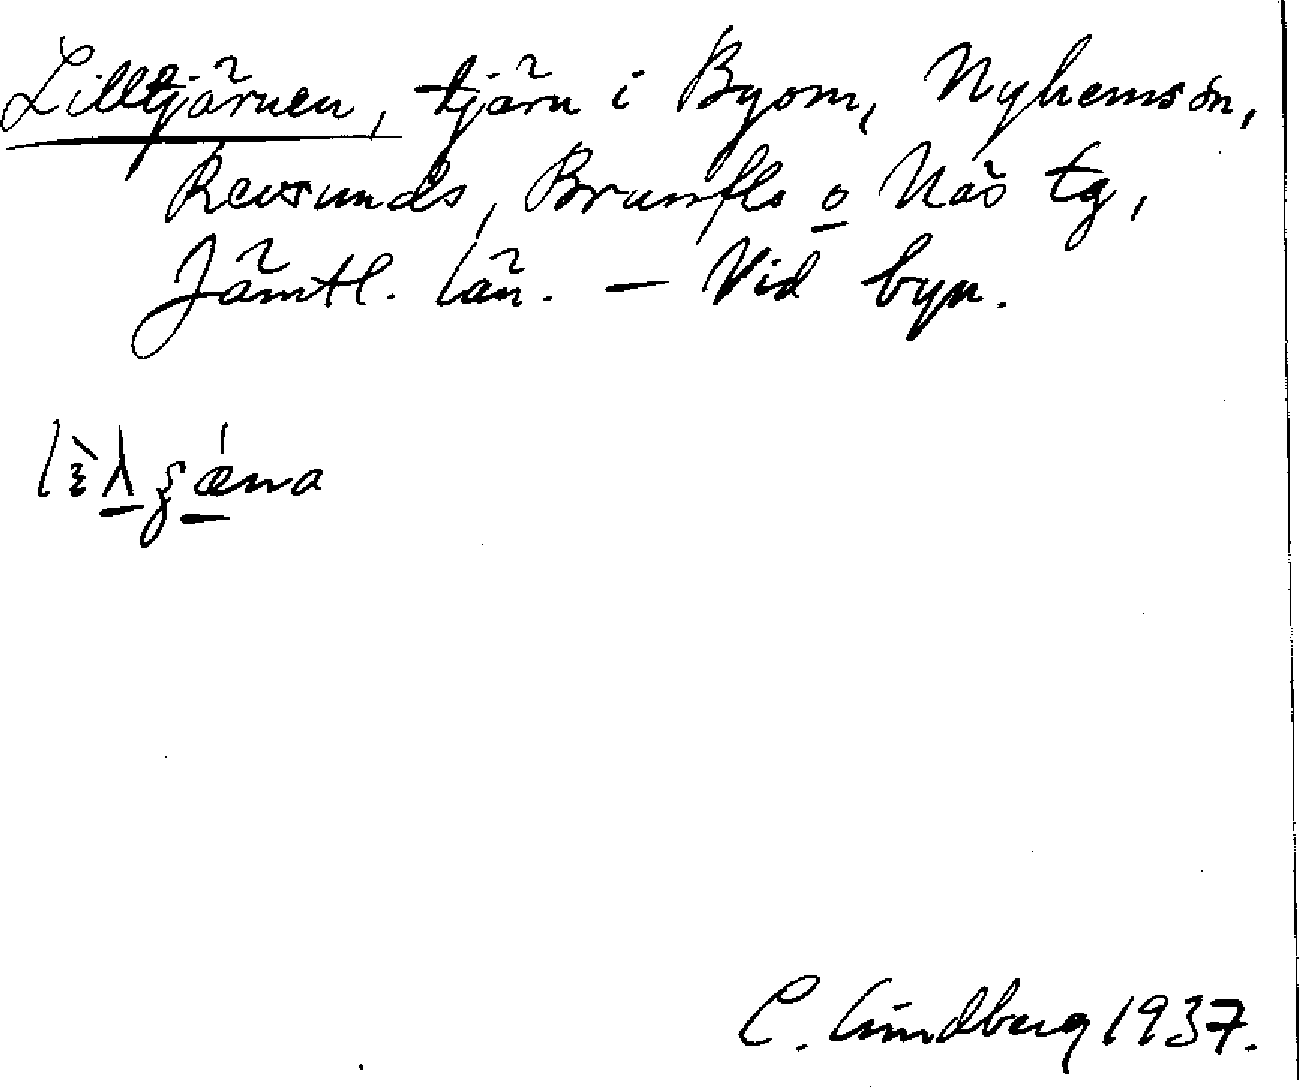 Lilltjärnen, tjärn i Byom, Nyhems sn,
Revsunds, Brunflo o Näs tg,
Jämtl. län. — Vid byn.
C. Lindberg 1937.